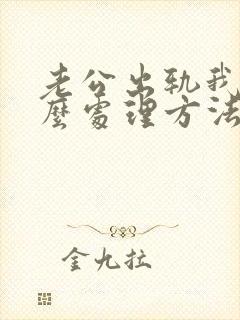 老公出轨我
麽处理方法
金九拉